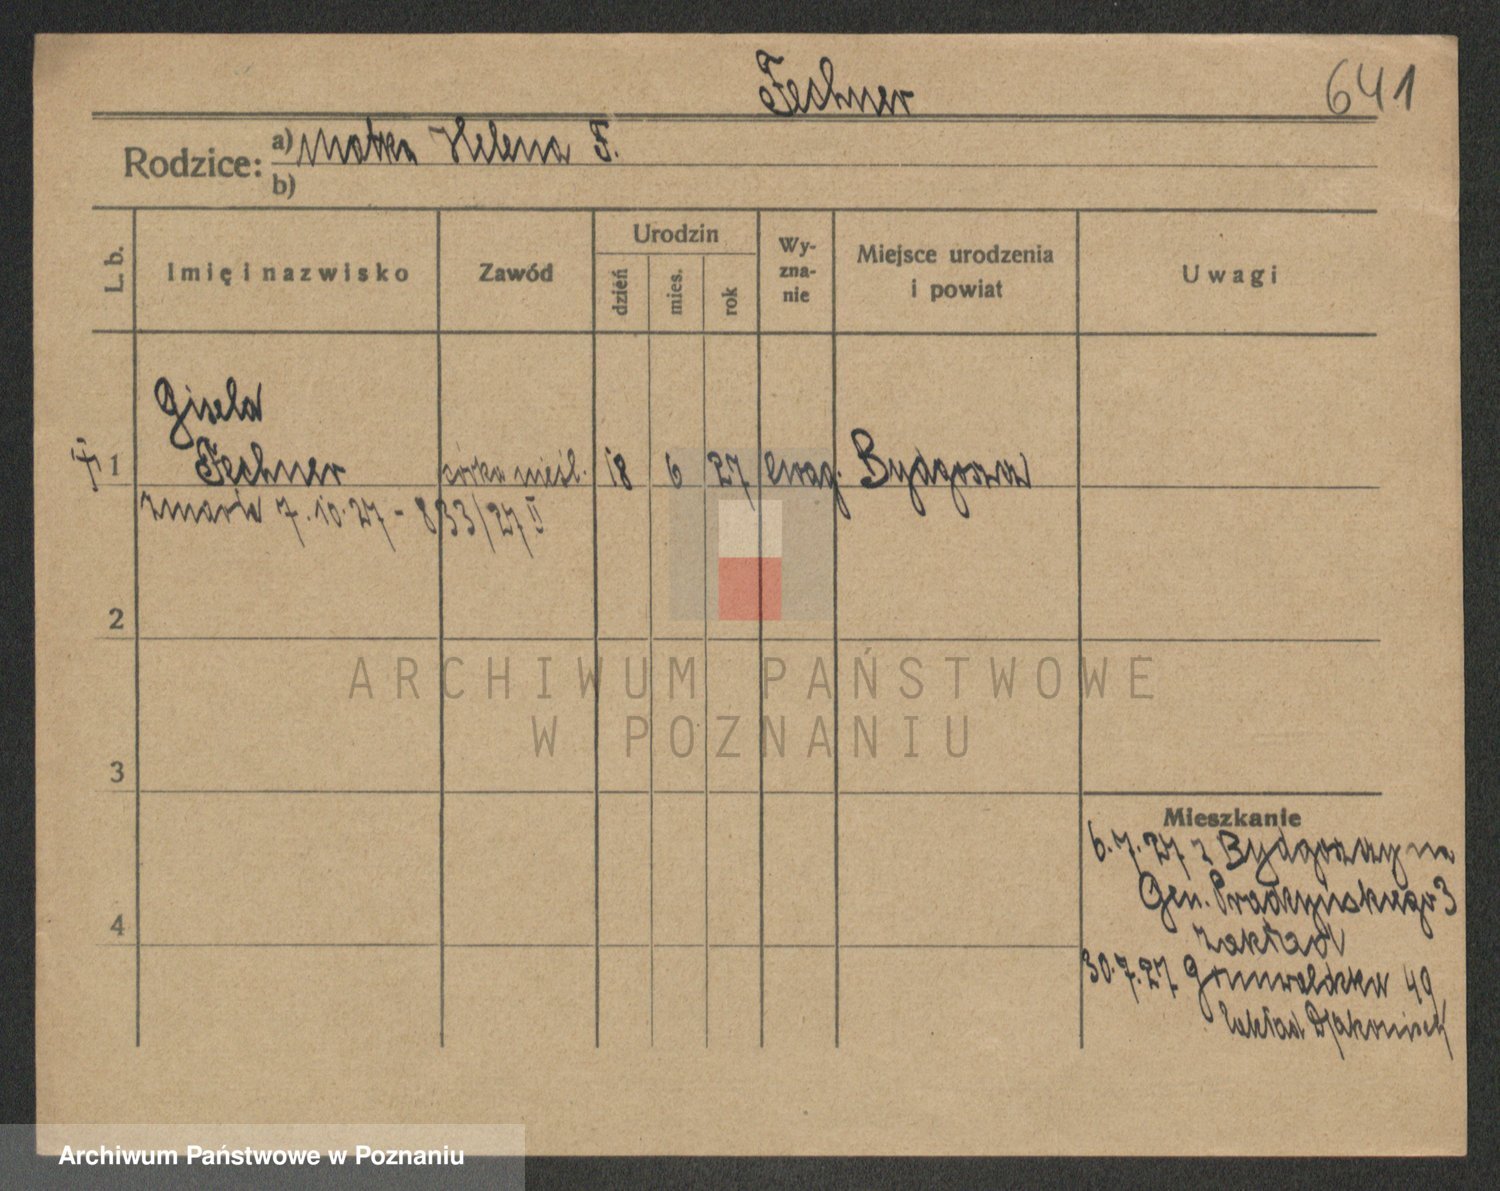 Fechner
641
Rodzice:
a) Matka Helena F.
b)
L. b.
Imię i nazwisko
Zawód
Urodzin
dzień
mies.
rok
Wy-
zna-
nie
Miejsce urodzenia
i powiat
Uwagi
Gisela
1 Fechner córka nieśl. 18 6 27 ewag. Bydgoszcz
zmarła 7.10.27 - 833/27 II
2
3
4
Mieszkanie
6.7.27 z Bydgoszczy na
Gen. Prądzyńskiego 3
zakład
30.7.27 Grunwaldzka 49
Zakład Djakonisek
ARCHIWUM PAŃSTWOWE
W POZNANIU
Archiwum Państwowe w Poznaniu